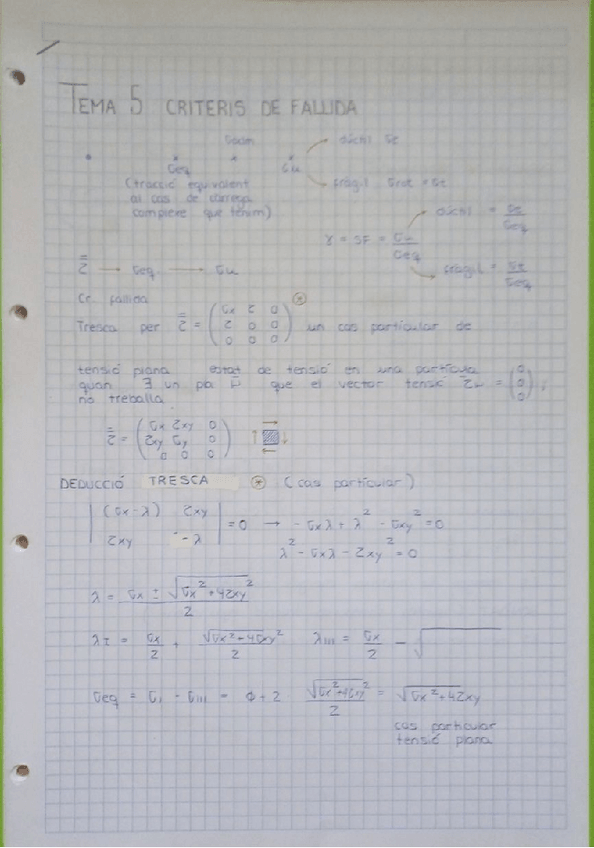 TEMA 5 CRITERIS DE FALLIDA
σadm
dúctil σe
σeq σu
fràgil σrot = σt
(tracció equivalent
al cas de càrrega
complexe que tenim)
γ = SF = σu/σeq
dúctil = σe/σeq
fràgil = σt/σeq
τ̿ → σeq → σu
Cr. fallida
Tresca per τ̿ = (σx τ 0; τ 0 0; 0 0 0) ⊛ un cas particular de
tensió plana estat de tensió en una partícula
quan ∃ un pla que el vector tensió = (0 0 0),
no treballa
τ̿ = (σx τxy 0; τxy σy 0; 0 0 0)
DEDUCCIÓ TRESCA ⊛ (cas particular)
|(σx-λ) τxy; τxy -λ| = 0 → -σxλ + λ² - τxy² = 0
λ² - σxλ - τxy² = 0
λ = σx ± √(σx² + 4τxy²) / 2
λI = σx/2 + √(σx² + 4τxy²)/2 λIII = σx/2 - √
σeq = σI - σIII = φ + 2 √(σx² + 4τxy²)/2 = √(σx² + 4τxy)
cas particular
tensió plana